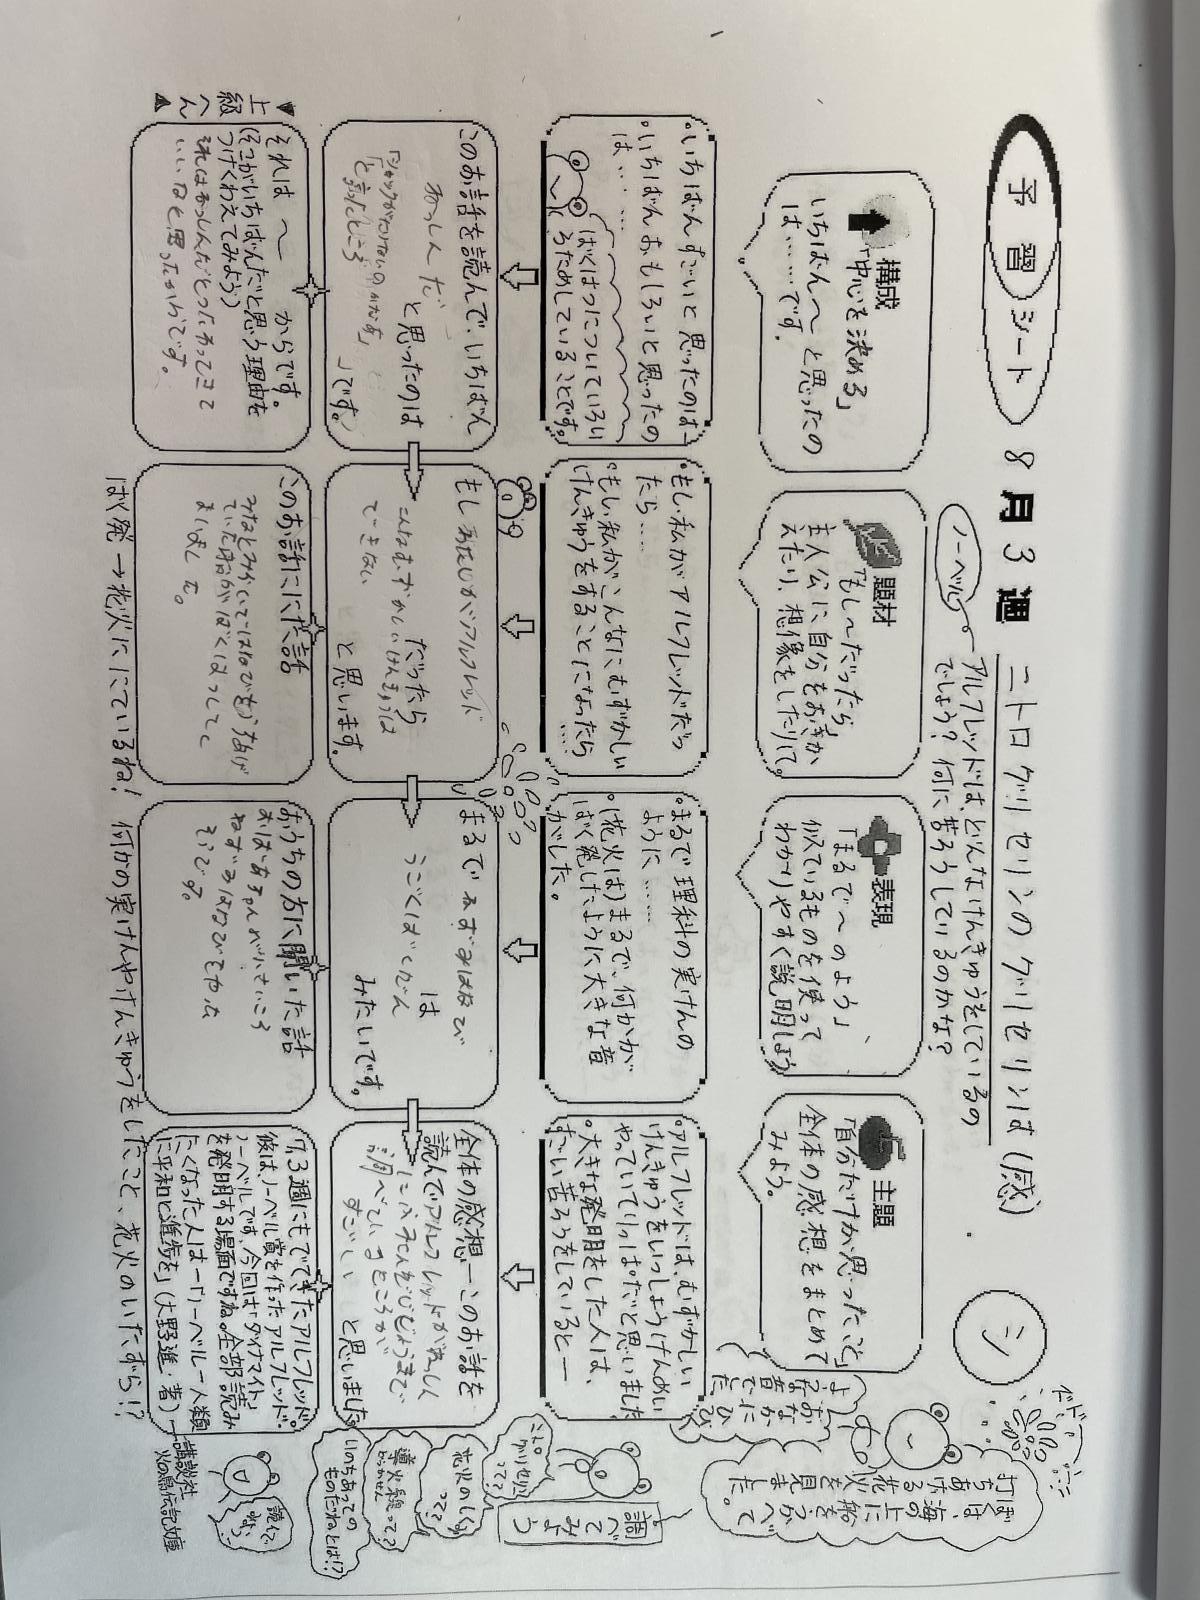 予習シート 8月3週 ニトログリセリンのグリセリンは(感) シ
ノーベル
アルフレッドは、どんなけんきゅうをしているの
でしょう?何に苦ろうしているのかな?
構成
「中心を決める」
いちばん〜と思ったの
は……です。
題材
「もし〜だったら」
主人公に自分をおきか
えたり、想像をしたりして。
表現
「まるで〜のよう」
似ているものを使って
わかりやすく説明しよう
主題
「自分だけが思ったこと」
全体の感想をまとめて
みよう。
・いちばんすごいと思ったのは―
・いちばんおもしろいと思ったの
は……
ばくはつについていろい
ろためしていることです。
・もし私がアルフレッドだっ
たら……
・もし私がこんなにむずかしい
けんきゅうをすることになったら
……
・まるで理科の実けんの
ように……
・(花火は)まるで、何かが
ばく発したように大きな音
がした。
・アルフレッドは、むずかしい
けんきゅうをいっしょうけんめい
やっていてりっぱだと思いました
・大きな発明をした人は、
すごい苦ろうをしていると―
このお話を読んで、いちばん
あっしんだ
と思ったのは
と言ったところ
」です。
もし あたしがアルフレッド
だったら
こんなむずかしいけんきゅうは
できない
と思います。
まるで ねずみはなび
は
うごくばくだん
みたいです。
全体の感想―このお話を
読んでアルフレッドが
調べているところが
すごい と思いました。
▼上級へん▲
それは 〜 からです。
(そこがいちばんだと思う理由を
つけくわえてみよう)
いいなと思ったからです。
このお話ににた話
ました。
おうちの方に聞いた話
おばあちゃんが小さいころ
ねずみはなびをやった
そうです。
7.3週にもでてきたアルフレッド。
彼は、ノーベル賞を作ったアルフレッド・
ノーベルです。今回は「ダイナマイト」
を発明する場面ですね。全部読み
たくなった人は―「ノーベル―人類
に平和と進歩を」(大野進・著)―講談社
火の鳥伝記文庫
ばく発→花火ににているね!何かの実けんやけんきゅうをしたこと、花火のいたずら!?
ドドーン
ぼくは、海の上に
打ちあげる花火を
船をうかべて
見ました。
おなかに
ひびく音でした
調べてみよう
ニトログリセリンって??
花火のしくみって??
導火線って?
どうかせん
いのちあっての
ものだねとは!?
読んでね